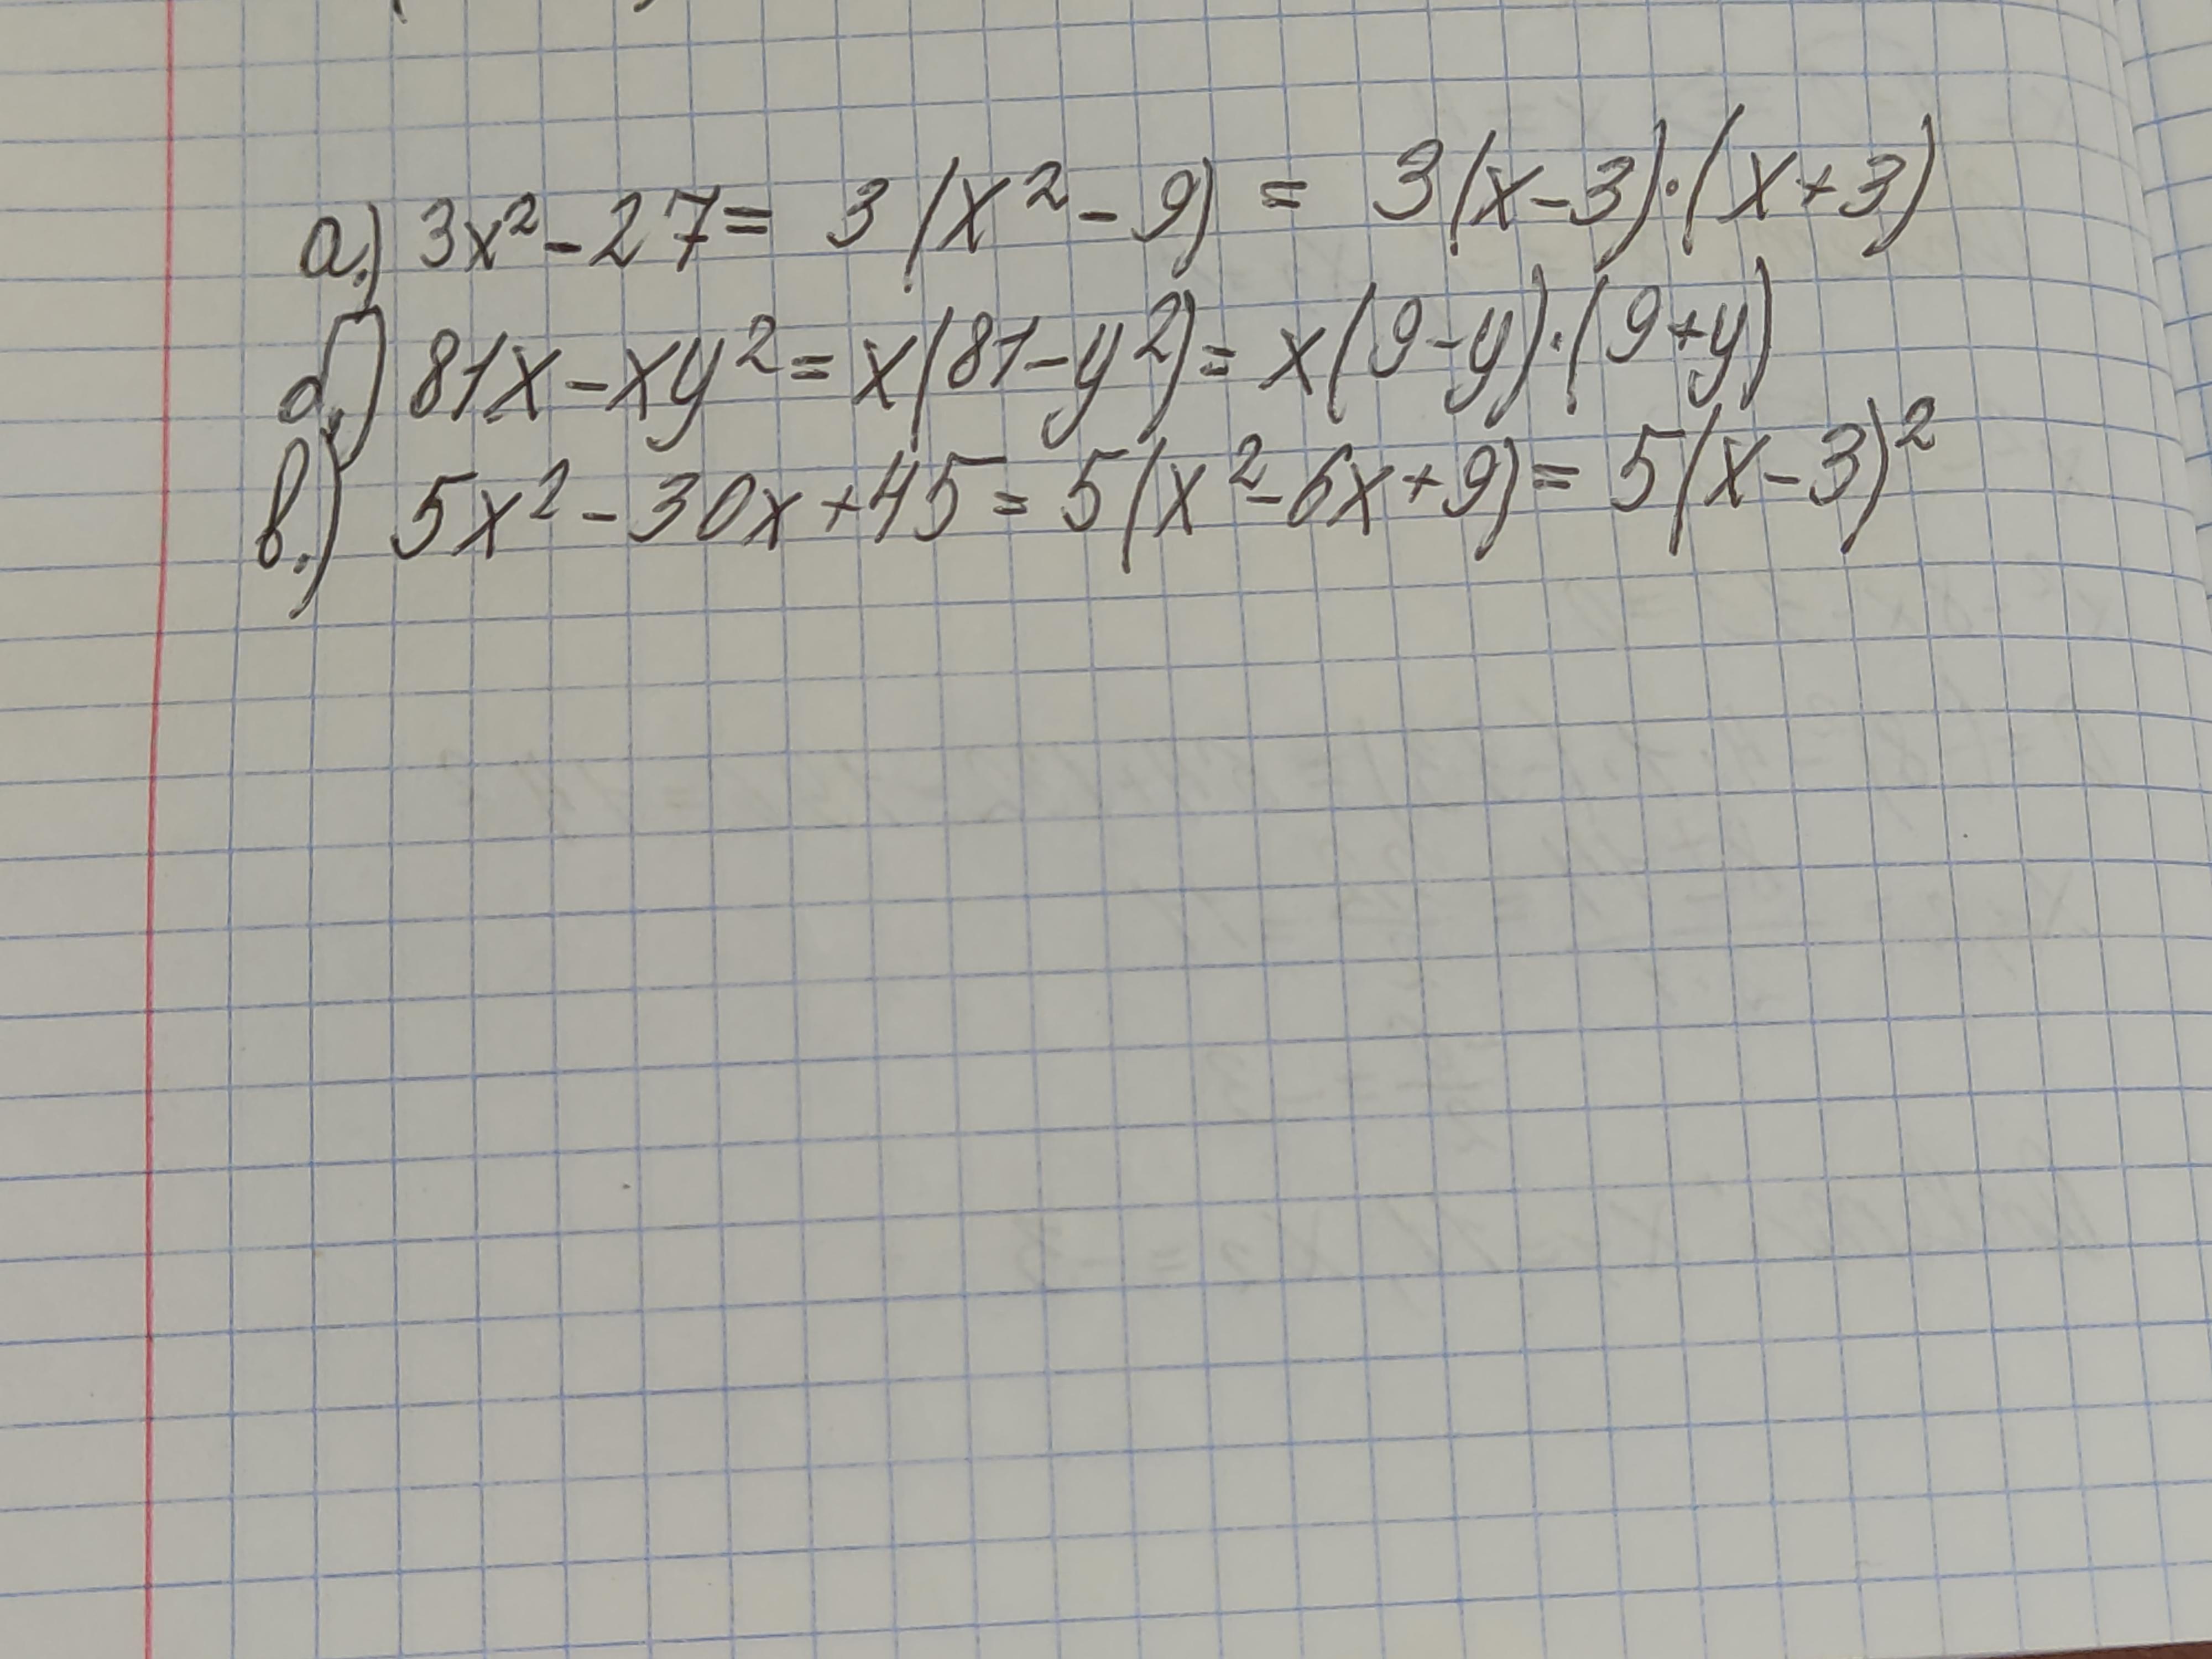 а.) 3x² - 27 = 3(x² - 9) = 3(x - 3)·(x + 3)
б.) 81x - xy² = x(81 - y²) = x(9 - y)·(9 + y)
в.) 5x² - 30x + 45 = 5(x² - 6x + 9) = 5(x - 3)²